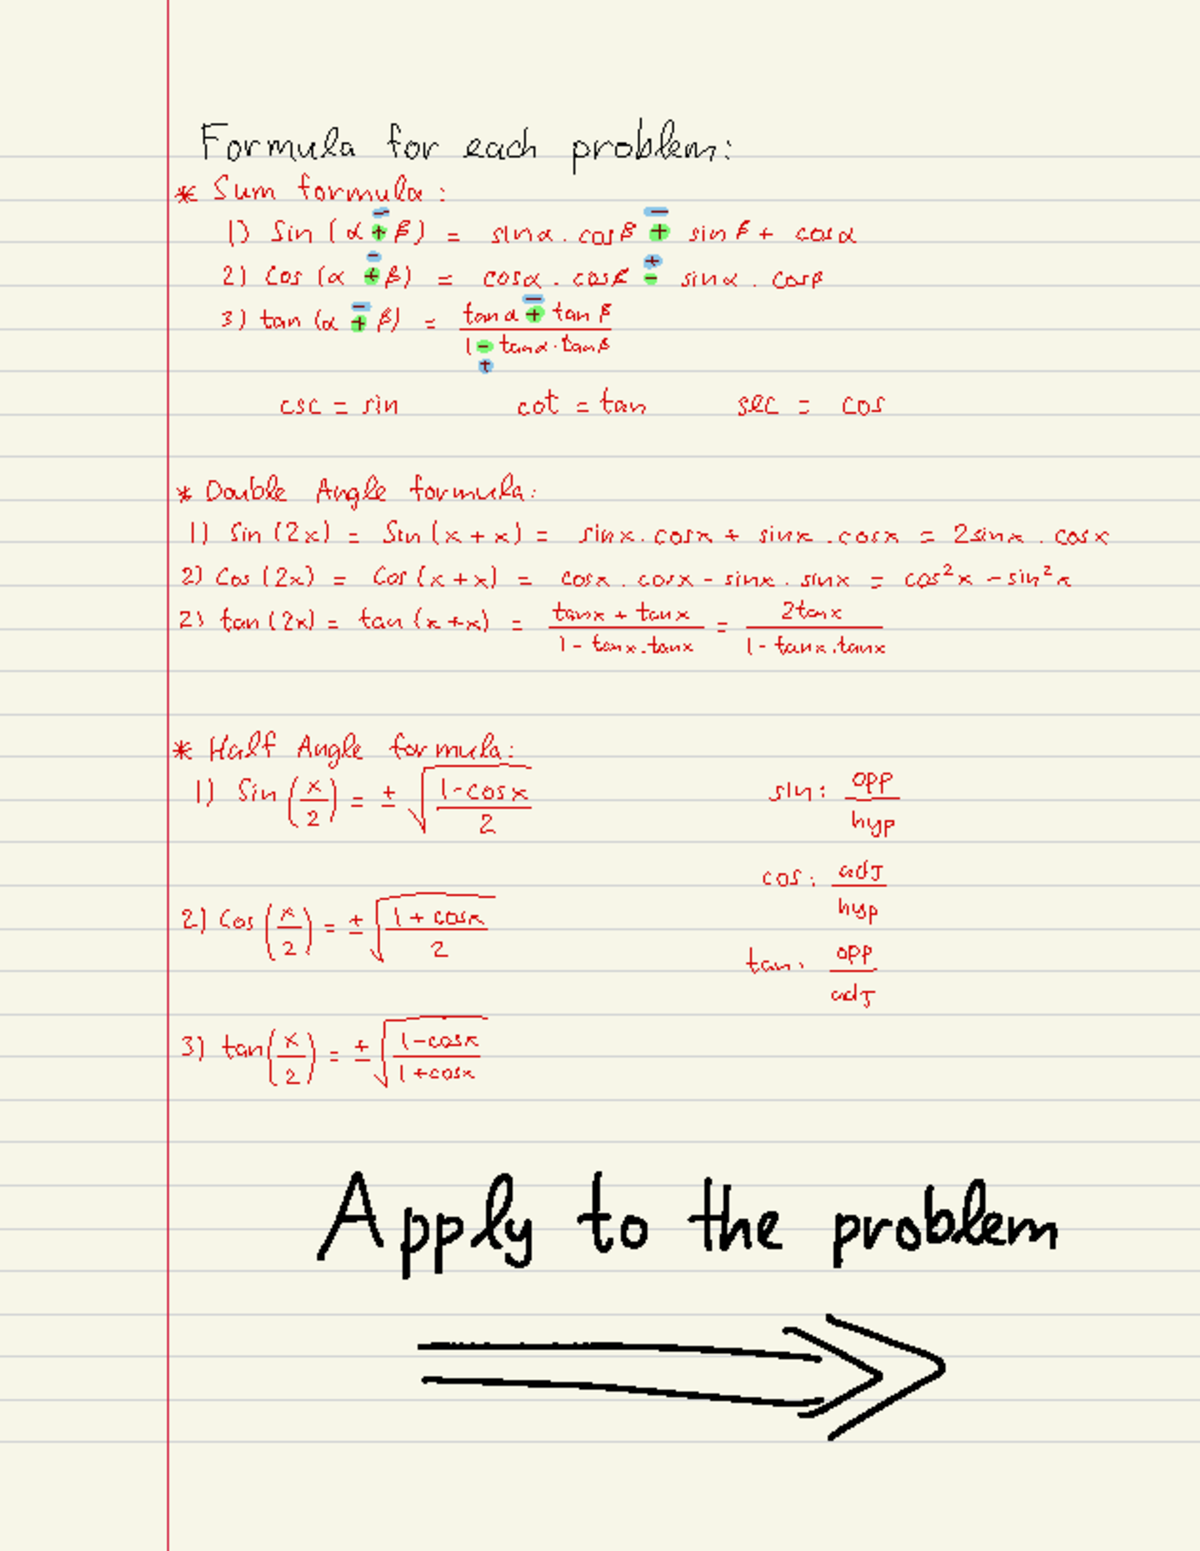 Formula for each problem:
* Sum formula:
1) Sin (α ∓ β) = sinα . cosβ ∓ sinβ + cosα
2) Cos (α ∓ β) = cosα . cosβ ± sinα . cosβ
3) tan (α ∓ β) = (tanα ∓ tanβ) / (1 ± tanα . tanβ)
csc = sin cot = tan sec = cos
* Double Angle formula:
1) Sin (2x) = Sin (x + x) = sinx . cosx + sinx . cosx = 2sinx . cosx
2) Cos (2x) = Cos (x + x) = cosx . cosx - sinx . sinx = cos²x - sin²x
2) tan (2x) = tan (x + x) = (tanx + tanx) / (1 - tanx . tanx) = 2tanx / (1 - tanx . tanx)
* Half Angle formula:
1) Sin (x/2) = ± √((1 - cosx) / 2)
sin: opp/hyp
2) Cos (x/2) = ± √((1 + cosx) / 2)
cos: adj/hyp
tan: opp/adj
3) tan (x/2) = ± √((1 - cosx) / (1 + cosx))
Apply to the problem